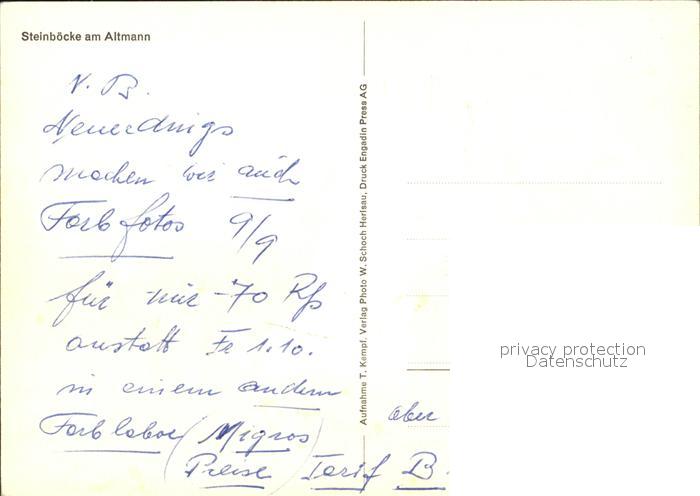 Steinböcke am Altmann
N.B.
Neuerdings
machen wir auch
Farbfotos 9/9
für nur -70 Rp
anstatt Fr 1.10.
in einem andern
Farblabor (Migros)
(Preise Tarif B.
aber
Aufnahme T. Kempf. Verlag Photo W. Schoch Herisau, Druck Engadin Press AG
privacy protection
Datenschutz